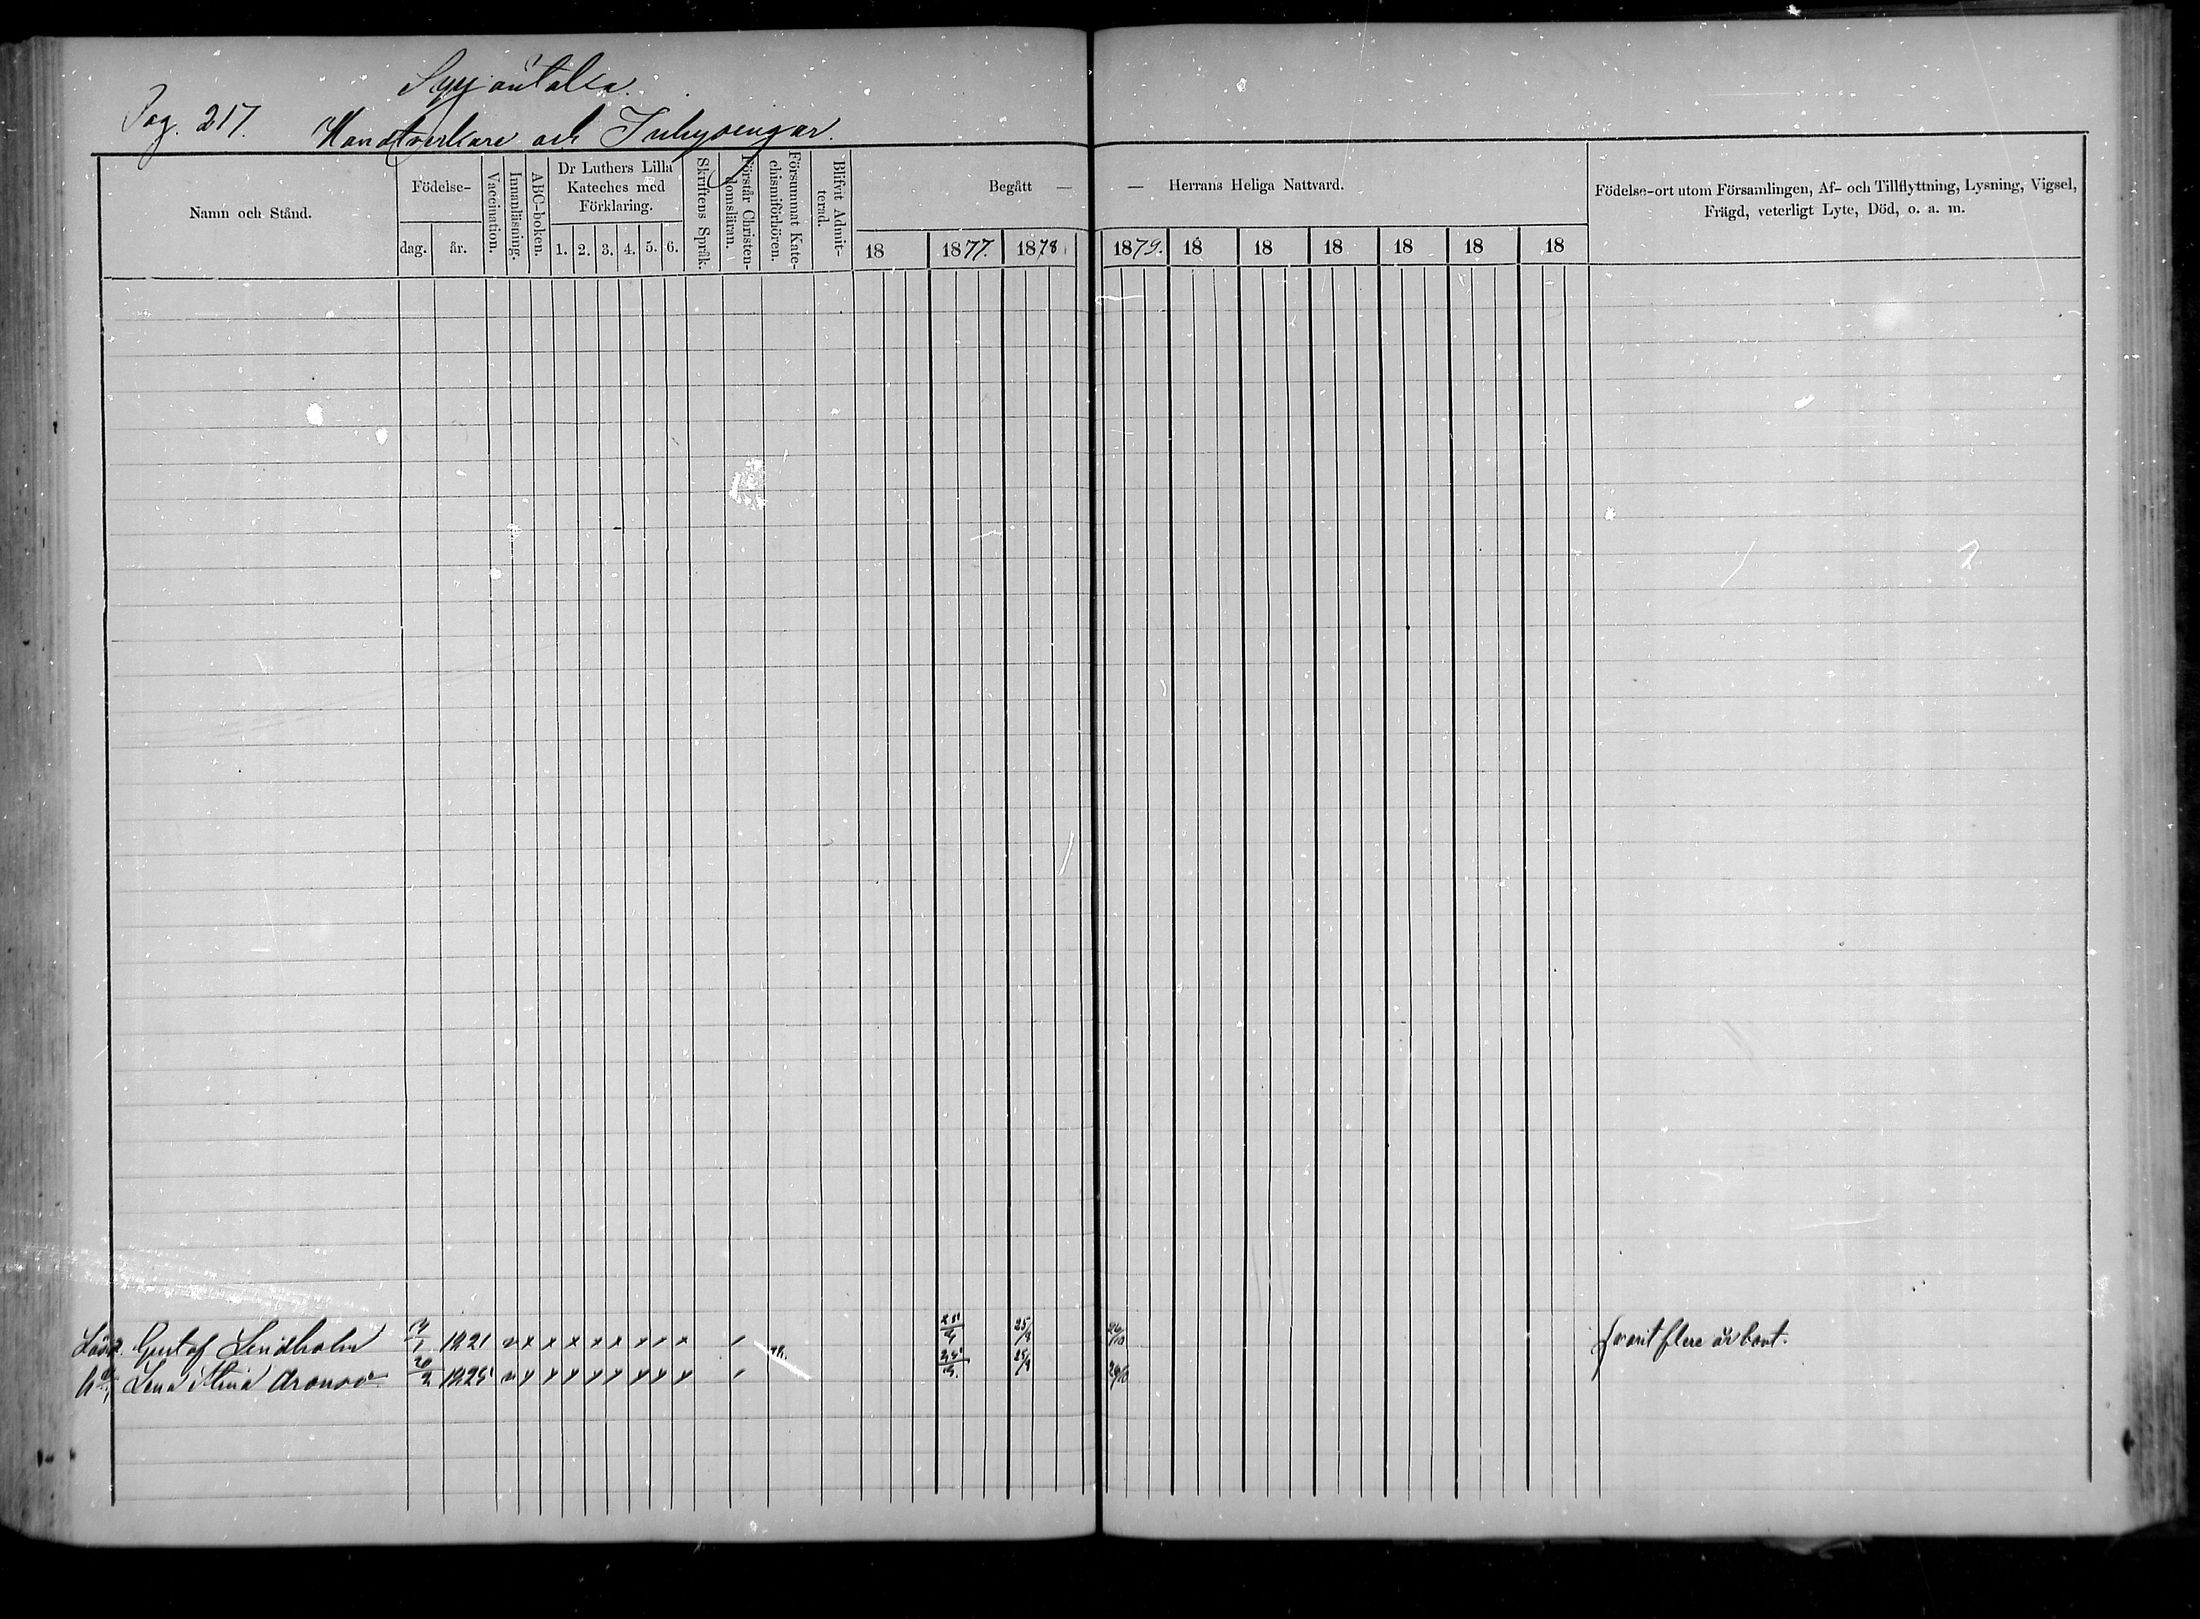 Syyjäntaka.
Pag. 217. Handtverkare och Inhysingar.
Namn och Stånd.
Födelse-
dag. år.
Vaccination.
Innanläsning.
ABC-boken.
Dr Luthers Lilla Kateches med Förklaring.
1. 2. 3. 4. 5. 6.
Skriftens Språk.
Förstår Christen-domsläran.
Försummat Kate-chismiförhören.
Blifvit Admit-terad.
Begått — — Herrans Heliga Nattvard.
18 1877. 1878 1879. 18 18 18 18 18 18
Födelse-ort utom Församlingen, Af- och Tillflyttning, Lysning, Vigsel,
Frägd, veterligt Lyte, Död, o. a. m.
Gustaf Lindholm 1821 25/8 26/10 varit flere år bort.
Lena Stina 20/2 1825 25/8 26/10